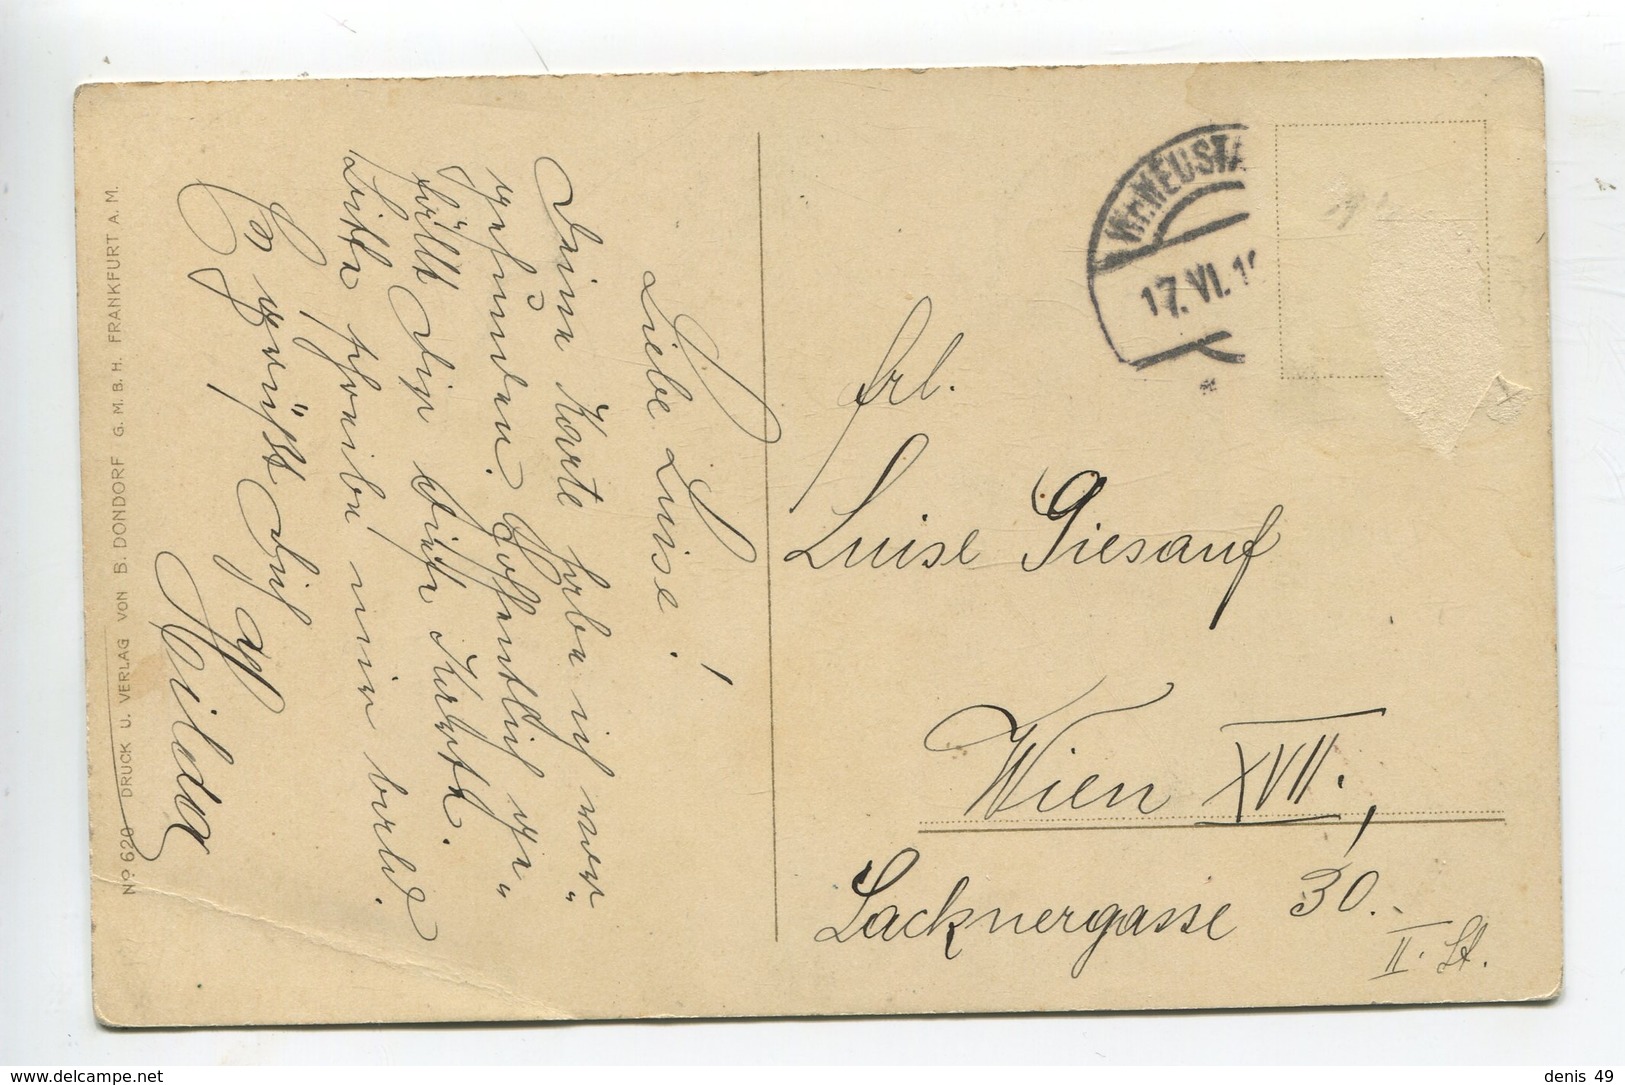 Liebe Luise!
Deine Karte habe ich vor„
gefunden. Hoffentlich ge„
fällt Dir diese Karte.
Bitte schreibe mir bald.
Es grüßt Dich
Hilda
No 620 DRUCK U. VERLAG VON B. DONDORF G. M. B. H. FRANKFURT A. M.
Wr. NEUSTA
17. VI. 1
Frl.
Luise Giesauf
Wien XVII.,
Lacknergasse 30.
II. St.
delcampe.net
denis 49